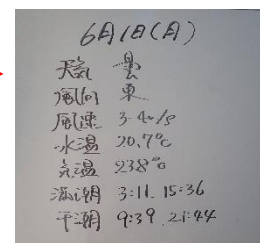 6月1日(月)
天気 曇
風向 東
風速 3-4m/s
水温 20.7℃
気温 23.8℃
満潮 3:11. 15:36
干潮 9:39 21:44